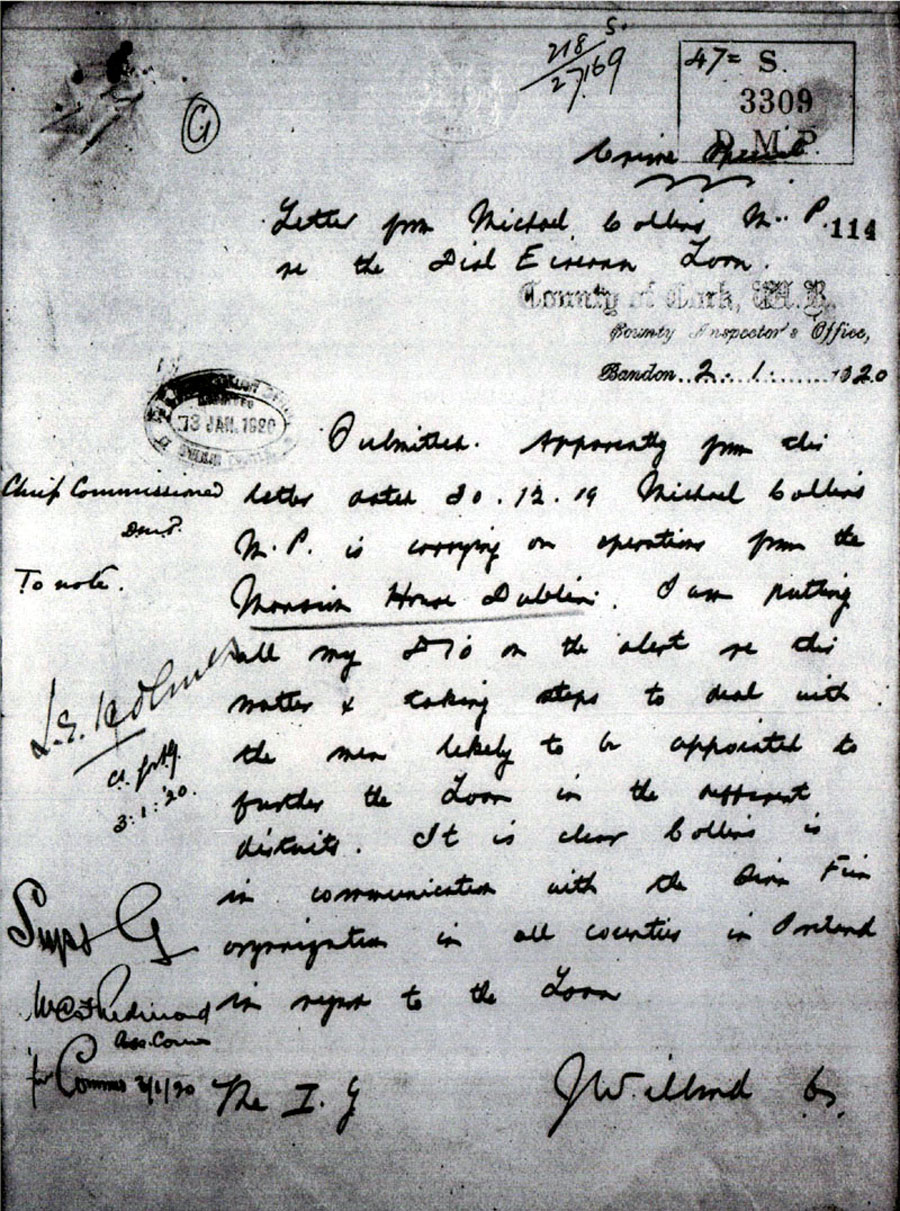 S.
218
27169
47= S.
3309
D.M.P.
G
Crime Special
Letter from Michael Collins M.P.
114
re the Dial Eireann Loan.
County of Cork, W.R.
County Inspector's Office,
Bandon 2.1.1920
3 JAN. 1920
Submitted. Apparently from this
Chief Commissioner
D.M.P.
letter dated 30.12.19 Michael Collins
M.P. is carrying on operations from the
To note.
Mansion House Dublin. I am putting
all my D I's on the alert re this
matter & taking steps to deal with
the men likely to be appointed to
3.1.'20.
further the Loan in the different
districts. It is clear Collins is
in communication with the Sinn Fein
Supt G
organization in all counties in Ireland
in regard to the Loan
Redmond
Ass. Comr
for Commr 3/1/20
The I. G